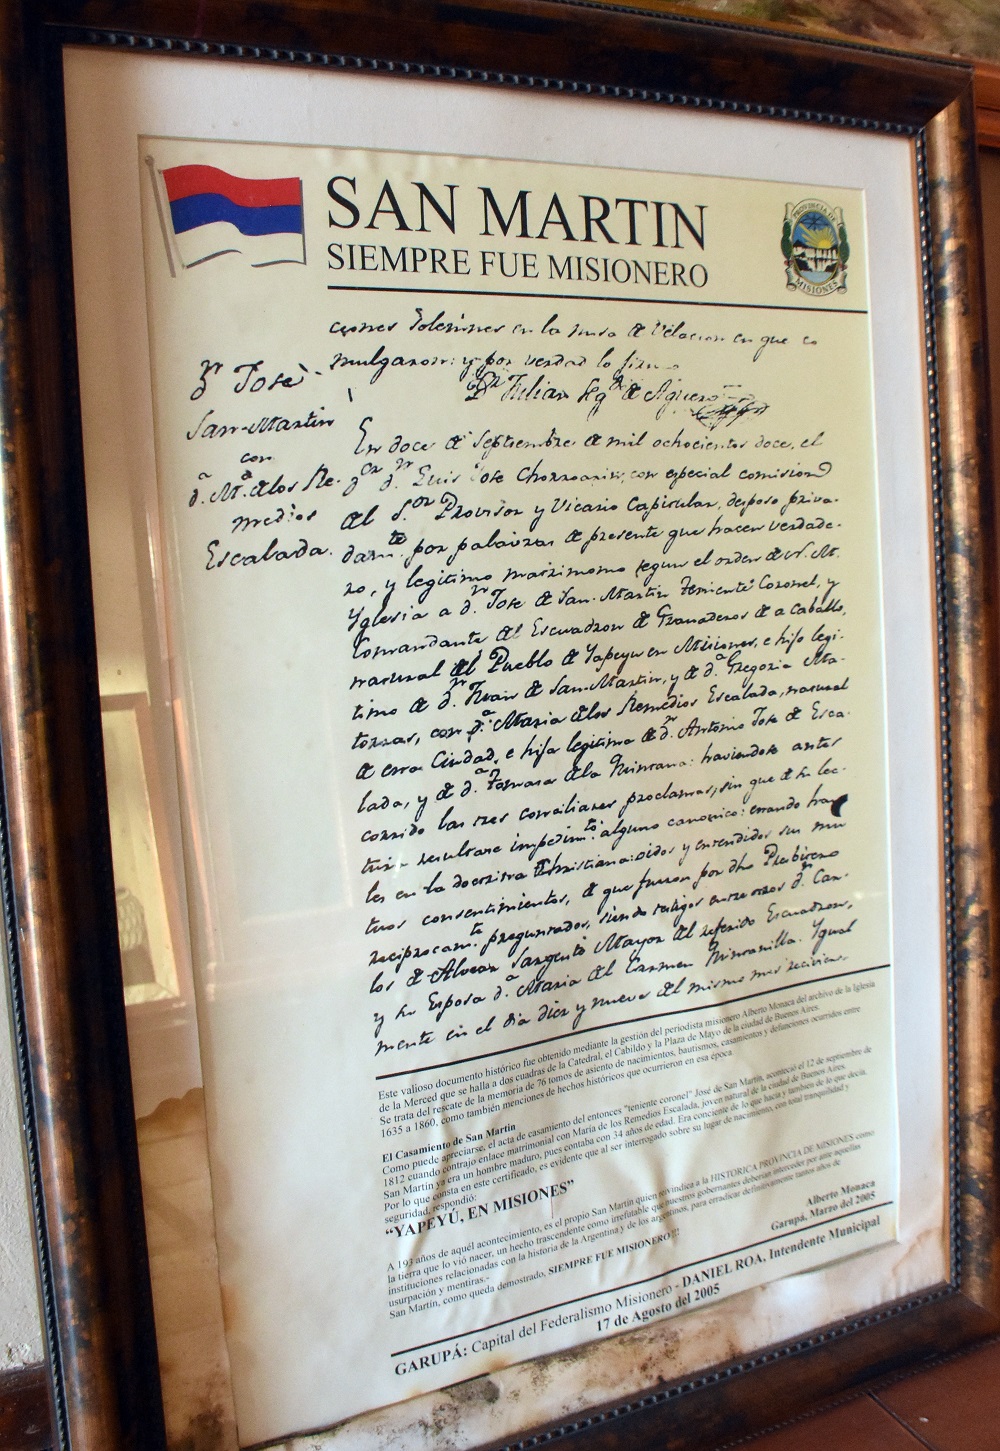 SAN MARTIN
SIEMPRE FUE MISIONERO
PROVINCIA DE
MISIONES
ciones solemnes en la misa de Velacion en que co
mulgaron: y por verdad lo firmo
Dn Julian Segdo de Agüero
Dn José
San-Martin
con
da. Ma. de los Re-
medios
Escalada.
En doce de Septiembre de mil ochocientos doce, el
Dor dn Luis José Chorroarin, con especial comision
del Sor Provisor y Vicario Capitular, desposo priva-
damte. por palabras de presente que hacen verdade-
ro, y legitimo matrimonio segun el orden de N. M.
Yglesia a dn Jose de San-Martin Teniente Coronel, y
Comandante del Escuadron de Granaderos de a caballo,
natural del Pueblo de Yapeyu en Misiones, e hijo legi-
timo de dn Juan de San-Martin, y de da Gregoria Ma-
torras, con da Maria de los Remedios Escalada, natural
de esta Ciudad, e hija legitima de dn Antonio Jose de Esca-
lada, y de da Tomasa de la Quintana: haviendose antes
corrido las tres conciliares proclamas, sin que de su lec-
tura resultase impedimto alguno canonico: estando havi
les en la doctrina Christiana: oidos y entendidos sus mu
tuos consentimientos, de que fueron por dho Presbitero
reciprocamte. preguntados, siendo testigos entre otros dn Car-
los de Alvear Sargento Mayor del referido Escuadron,
y su Esposa da Maria del Carmen Quintanilla. Ygual
mente en el dia diez y nueve del mismo mes recivieron
Este valioso documento histórico fue obtenido mediante la gestión del periodista misionero Alberto Monaca del archivo de la Iglesia
de la Merced que se halla a dos cuadras de la Catedral, el Cabildo y la Plaza de Mayo de la ciudad de Buenos Aires.
Se trata del rescate de la memoria de 76 tomos de asiento de nacimientos, bautismos, casamientos y defunciones ocurridos entre
1635 a 1860, como también menciones de hechos históricos que ocurrieron en esa época
El Casamiento de San Martín
Como puede apreciarse, el acta de casamiento del entonces "teniente coronel" José de San Martín, aconteció el 12 de septiembre de
1812 cuando contrajo enlace matrimonial con María de los Remedios Escalada, joven natural de la ciudad de Buenos Aires.
San Martín ya era un hombre maduro, pues contaba con 34 años de edad. Era conciente de lo que hacía y también de lo que decía.
Por lo que consta en este certificado, es evidente que al ser interrogado sobre su lugar de nacimiento, con total tranquilidad y
seguridad, respondió:
“YAPEYÚ, EN MISIONES”
A 193 años de aquél acontecimiento, es el propio San Martín quien reivindica a la HISTORICA PROVINCIA DE MISIONES como
la tierra que lo vió nacer, un hecho trascendente como irrefutable que nuestros gobernantes deberían interceder por ante aquellas
instituciones relacionadas con la historia de la Argentina y de los argentinos, para erradicar definitivamente tantos años de
usurpación y mentiras.-
San Martín, como queda demostrado, SIEMPRE FUE MISIONERO!!!
Alberto Monaca
Garupá, Marzo del 2005
GARUPÁ: Capital del Federalismo Misionero - DANIEL ROA, Intendente Municipal
17 de Agosto del 2005